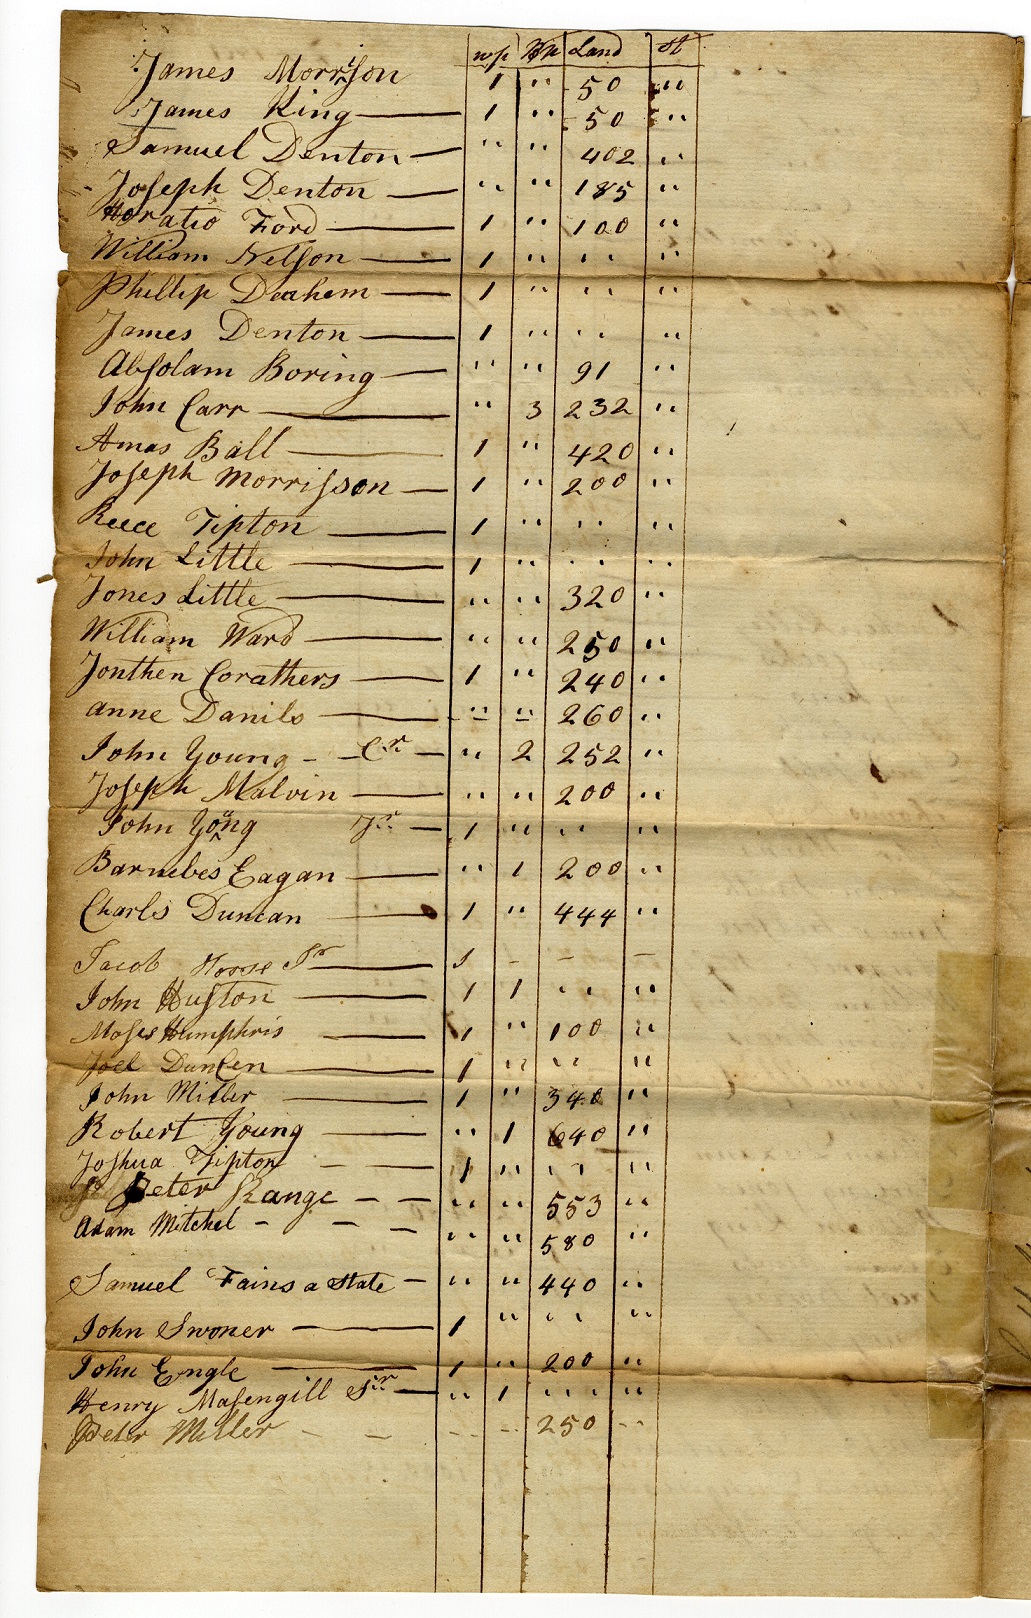 wp Bp Land St
James Morrison 1 " 50 "
James King 1 " 50 "
Samuel Denton " " 402 "
Joseph Denton " " 185 "
Horatio Ford 1 " 100 "
William Nelson 1 " " "
Phillip Dechem 1 " " "
James Denton 1 " " "
Absolam Boring " " 91 "
John Carr " 3 232 "
Amas Ball 1 " 420 "
Joseph Morrisson 1 " 200 "
Reece Tipton 1 " " "
John Little 1 " " "
Jones Little " " 320 "
William Ward " " 250 "
Jonthen Corathers 1 " 240 "
anne Danils " " 260 "
John Young Cr " 2 252 "
Joseph Malvin " " 200 "
John Young Jr 1 " " "
Barnebes Eagan " 1 200 "
Charls Duncan 1 " 444 "
Jacob Hoose Sr 1 - - -
John Huston 1 1 " "
Moses Humphris 1 " 100 "
Joel Duncen 1 " " "
John Miller 1 " 340 "
Robert Young " 1 640 "
Joshua Tipton 1 " " "
Peter Range " " 553 "
Adam Mitchel " " 580 "
Samuel Fains a State " " 440 "
John Swoner 1 " " "
John Engle 1 " 200 "
Henry Masengill Sr " 1 " "
Peter Miller - - 250 -